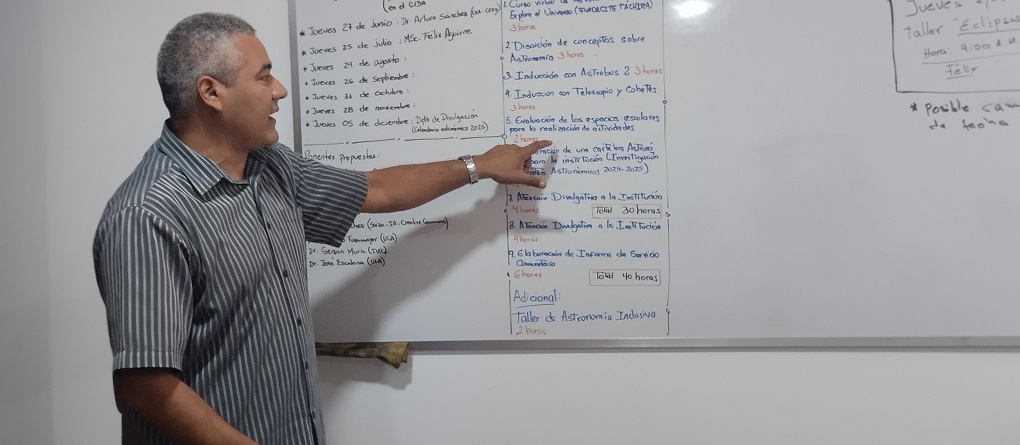 en el CIDA)
* Jueves 27 de Junio: Dr. Arturo Sánchez
* Jueves 25 de Julio: MSc. Felix Aguirre
* Jueves 29 de agosto:
* Jueves 26 de Septiembre:
* Jueves 31 de Octubre:
* Jueves 28 de noviembre:
* Jueves 05 de diciembre: Dpto de Divulgación
(Calendario astronómico 2025)
Ponentes Propuestos:
(UCA)
Dr. German
Dr. José Escalona (ULA)
1. Curso virtual de
Explora el Universo (FUNDACITE TÁCHIRA)
3 horas
2. Discusión de conceptos sobre
Astronomía 3 horas
3. Inducción con Astrobus 2 3 horas
4. Inducción con Telescopio y Cohetes
3 horas
5. Evaluación de los espacios escolares
para la realización de actividades
2 horas
de una cartelera
para la institución (Investigación
Astronómicos 2024-2025)
7. Atención Divulgativa a la Institución
4 horas Total 30 horas
8. Atención Divulgativa a la Institución
4 horas
9. Elaboración de Informe de Servicio
Comunitario
6 horas Total 40 horas
Adicional:
Taller de Astronomía Inclusiva
2 horas
Jueves
taller "Eclipses
Hora: 9:00 AM
Felix
* Posible
de fecha